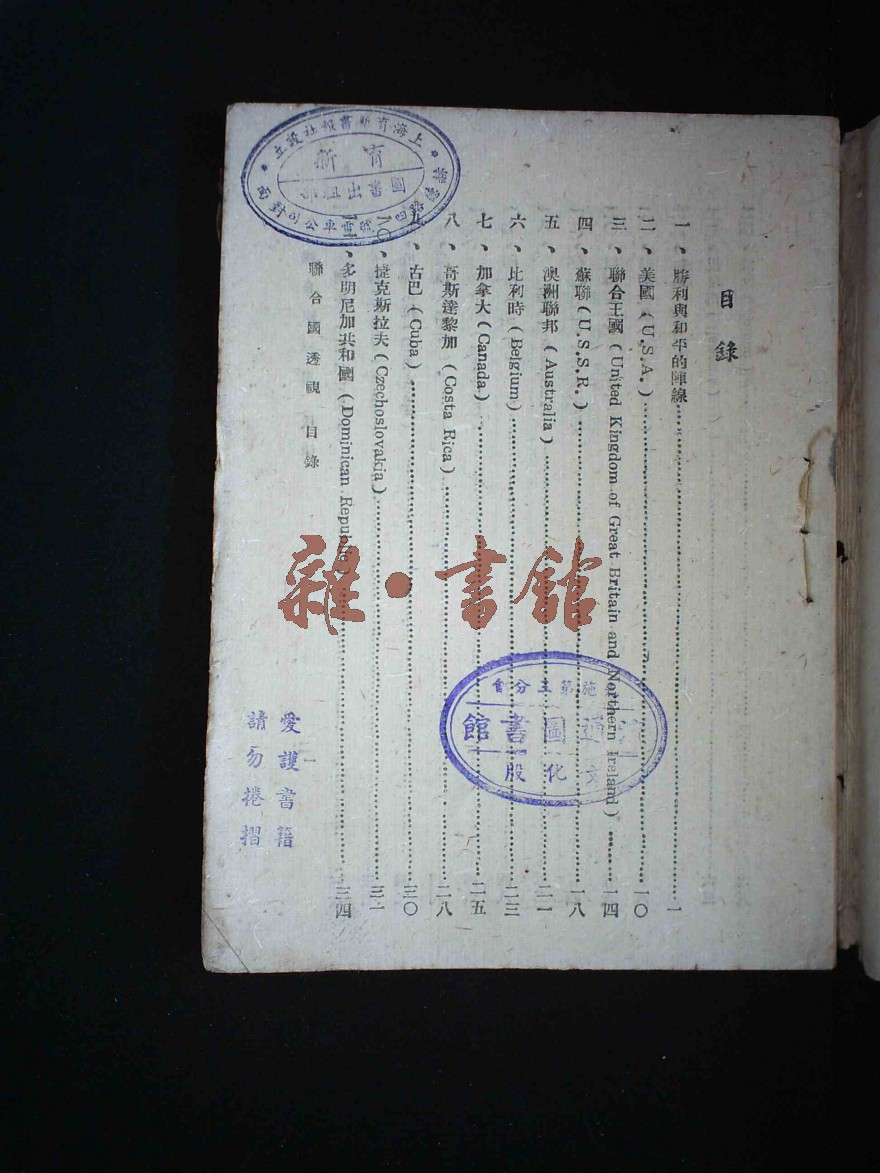 目錄
一、勝利與和平的陣線……一
二、美國（U.S.A.）……一〇
三、聯合王國（United Kingdom of Great Britain and Northern Ireland）……一四
四、蘇聯（U.S.S.R.）……一八
五、澳洲聯邦（Australia）……二一
六、比利時（Belgium）……二三
七、加拿大（Canada）……二五
八、哥斯達黎加（Costa Rica）……二八
九、古巴（Cuba）……三〇
一〇、捷克斯拉夫（Czechoslovakia）……三一
一一、多明尼加共和國（Dominican Republic）……三四
聯合國透視 目錄
一
上海有新書報社設立
有新
圖書出租部
電車公司對面
圖書館
文化股
愛護書籍
請勿捲摺
雜·書館